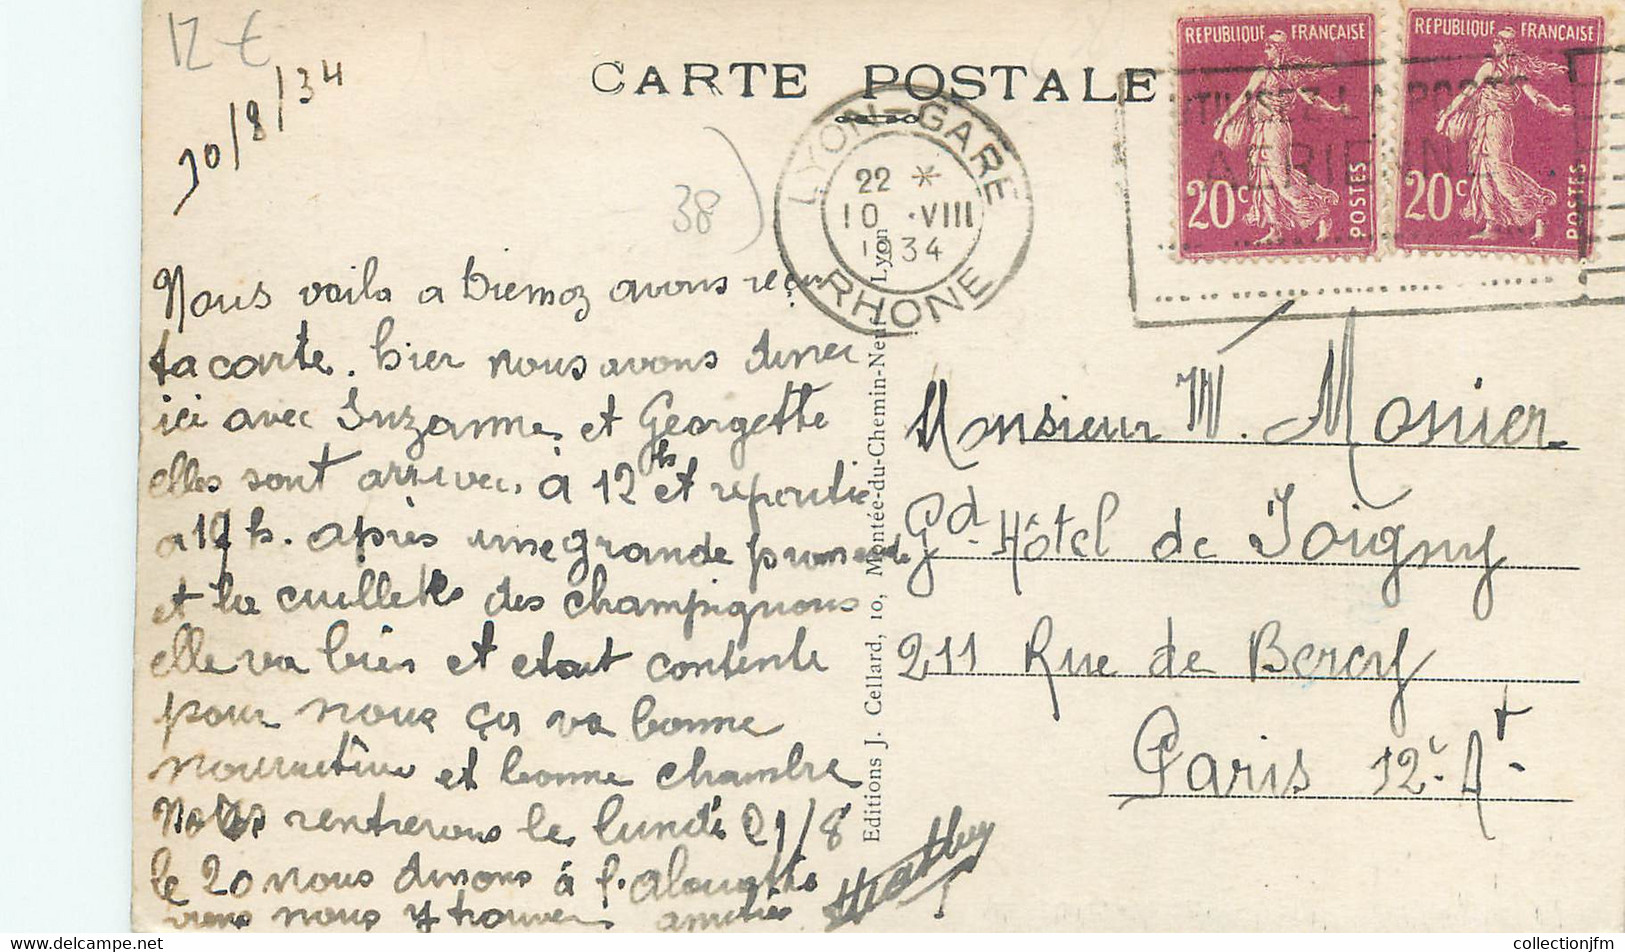 12 €
10/8/34
CARTE POSTALE
38
LYON-GARE
22 *
10 ·VIII
1934
RHONE
REPUBLIQUE FRANÇAISE
20c
POSTES
REPUBLIQUE FRANÇAISE
20c
POSTES
UTILISEZ LA POSTE
AERIENNE
Nous voila a biemoz avons reçu
ta carte. hier nous avons diner
ici avec Suzanne et Georgette
elles sont arrivec. à 12h et repartie
a 17 h. après une grande promenade
et la cuillete des champignons
elle va bien et etait contente
pour nous ça va bonne
nourriture et bonne chambre
Nous rentrerons le lundi 21/8
le 20 nous dinons à l. alouette
viens nous y trouver amities
Editions J. Cellard, 10, Montée-du-Chemin-Neuf, Lyon
Monsieur M. Monier
Gd Hôtel de Joigny
211 Rue de Bercy
Paris 12e At
delcampe.net
collectionjfm